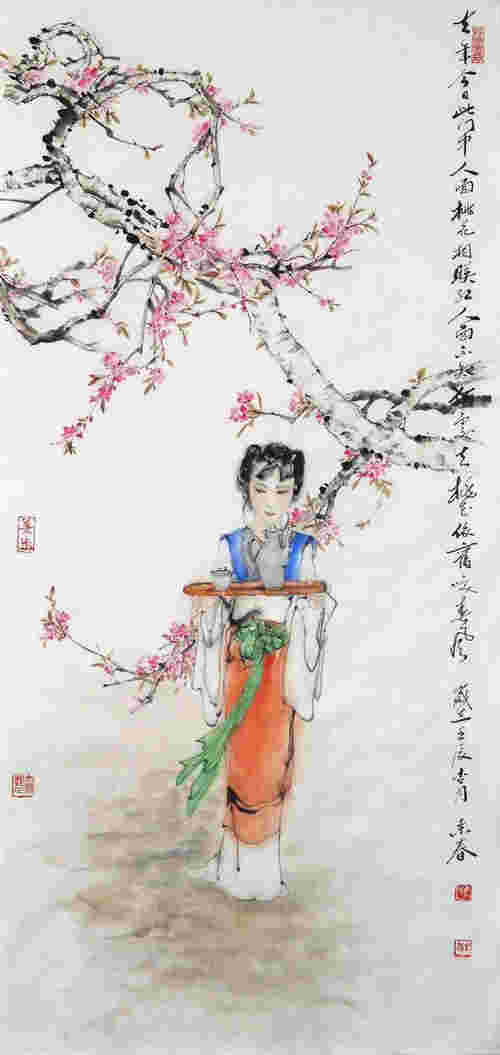 去年今日此门中人面桃花相映红人面不知何處去桃花依舊咲春风 歲在壬辰吉月 春